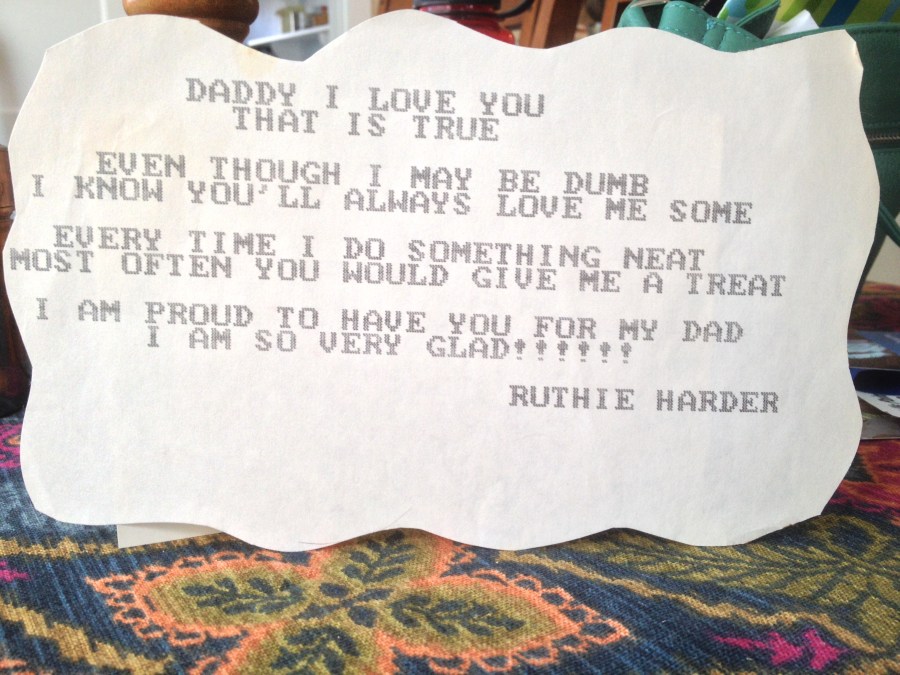 DADDY I LOVE YOU
THAT IS TRUE
EVEN THOUGH I MAY BE DUMB
I KNOW YOU'LL ALWAYS LOVE ME SOME
EVERY TIME I DO SOMETHING NEAT
MOST OFTEN YOU WOULD GIVE ME A TREAT
I AM PROUD TO HAVE YOU FOR MY DAD
I AM SO VERY GLAD!!!!!!
RUTHIE HARDER